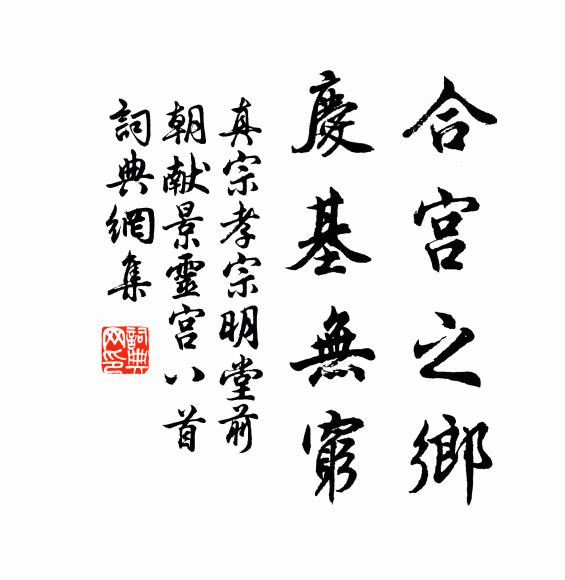 合宫之鄉
慶基無窮
真宗孝宗明堂前
朝献景靈宫八首
詞典網集
詞典
网印